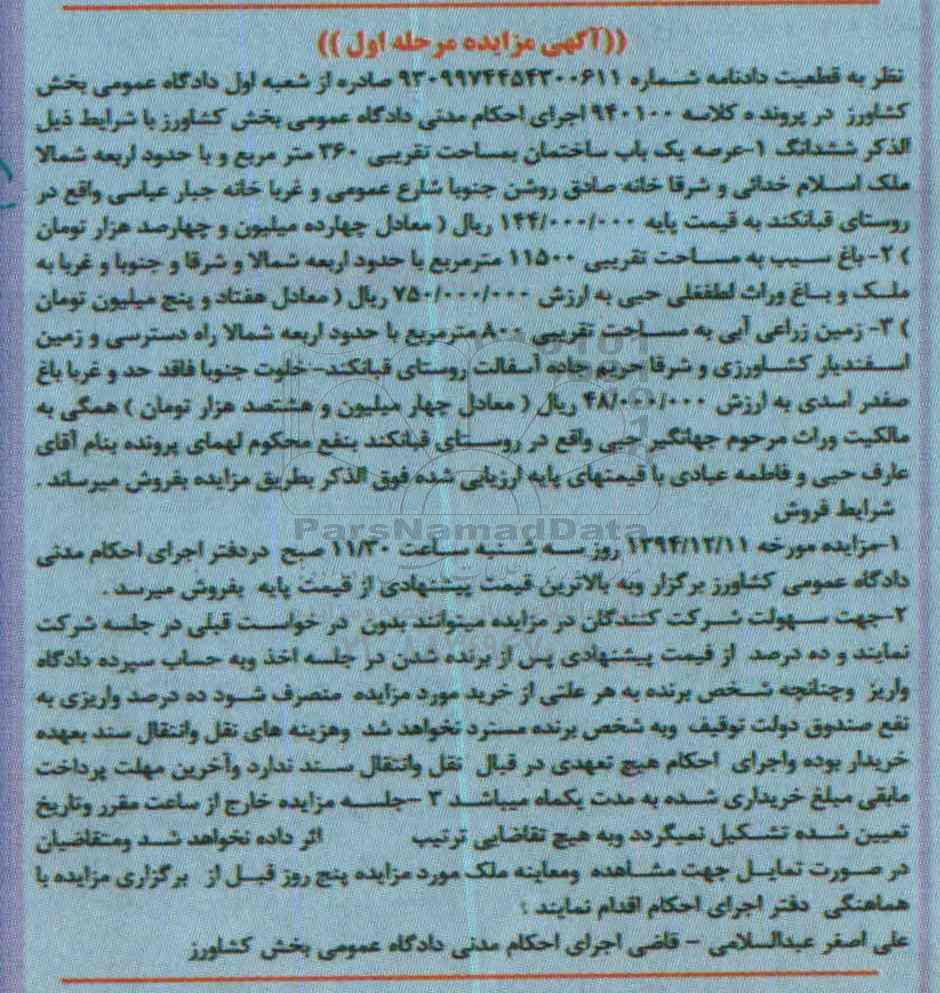 ((آگهی مزایده مرحله اول))
نظر به قطعیت دادنامه شماره ۹۳۰۹۹۷۴۴۵۴۳۰۰۶۱۱ صادره از شعبه اول دادگاه عمومی بخش
کشاورز در پرونده کلاسه ۹۴۰۱۰۰ اجرای احکام مدنی دادگاه عمومی بخش کشاورز با شرایط ذیل
الذکر ششدانگ ۱-عرصه یک باب ساختمان بمساحت تقریبی ۳۶۰ متر مربع و با حدود اربعه شمالا
ملک اسلام خدائی و شرقا خانه صادق روشن جنوبا شارع عمومی و غربا خانه جبار عباسی واقع در
روستای قبانکند به قیمت پایه ۱۴۴/۰۰۰/۰۰۰ ریال ( معادل چهارده میلیون و چهارصد هزار تومان
) ۲- باغ سیب به مساحت تقریبی ۱۱۵۰۰ مترمربع با حدود اربعه شمالا و شرقا و جنوبا و غربا به
ملک و باغ وراث لطفعلی حبی به ارزش ۷۵۰/۰۰۰/۰۰۰ ریال ( معادل هفتاد و پنج میلیون تومان
) ۳- زمین زراعی آبی به مساحت تقریبی ۸۰۰ مترمربع با حدود اربعه شمالا راه دسترسی و زمین
اسفندیار کشاورزی و شرقا حریم جاده آسفالت روستای قبانکند- خلوت جنوبا فاقد حد و غربا باغ
صفدر اسدی به ارزش ۴۸/۰۰۰/۰۰۰ ریال ( معادل چهار میلیون و هشتصد هزار تومان ) همگی به
مالکیت وراث مرحوم جهانگیر حبی واقع در روستای قبانکند بنفع محکوم لهمای پرونده بنام آقای
عارف حبی و فاطمه عبادی با قیمتهای پایه ارزیابی شده فوق الذکر بطریق مزایده بفروش میرساند .
شرایط فروش
۱-مزایده مورخه ۱۳۹۴/۱۲/۱۱ روز سه شنبه ساعت ۱۱/۳۰ صبح دردفتر اجرای احکام مدنی
دادگاه عمومی کشاورز برگزار وبه بالاترین قیمت پیشنهادی از قیمت پایه بفروش میرسد .
۲-جهت سهولت شرکت کنندگان در مزایده میتوانند بدون در خواست قبلی در جلسه شرکت
نمایند و ده درصد از قیمت پیشنهادی پس از برنده شدن در جلسه اخذ وبه حساب سپرده دادگاه
واریز وچنانچه شخص برنده به هر علتی از خرید مورد مزایده منصرف شود ده درصد واریزی به
نفع صندوق دولت توقیف وبه شخص برنده مسترد نخواهد شد وهزینه های نقل وانتقال سند بعهده
خریدار بوده واجرای احکام هیچ تعهدی در قبال نقل وانتقال سند ندارد وآخرین مهلت پرداخت
مابقی مبلغ خریداری شده به مدت یکماه میباشد ۳ -جلسه مزایده خارج از ساعت مقرر وتاریخ
تعیین شده تشکیل نمیگردد وبه هیچ تقاضایی ترتیب اثر داده نخواهد شد ومتقاضیان
در صورت تمایل جهت مشاهده ومعاینه ملک مورد مزایده پنج روز قبل از برگزاری مزایده با
هماهنگی دفتر اجرای احکام اقدام نمایند ؛
علی اصغر عبدالسلامی - قاضی اجرای احکام مدنی دادگاه عمومی بخش کشاورز
ParsNamadData